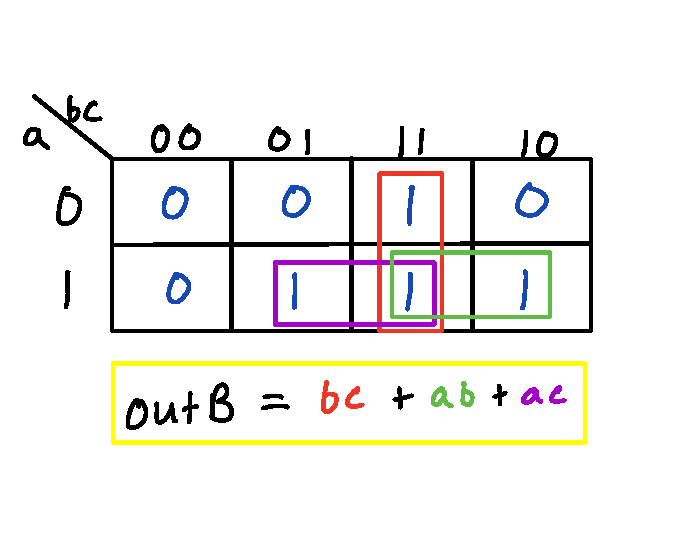 bc
a 00 01 11 10
0 0 0 1 0
1 0 1 1 1
outB = bc + ab + ac